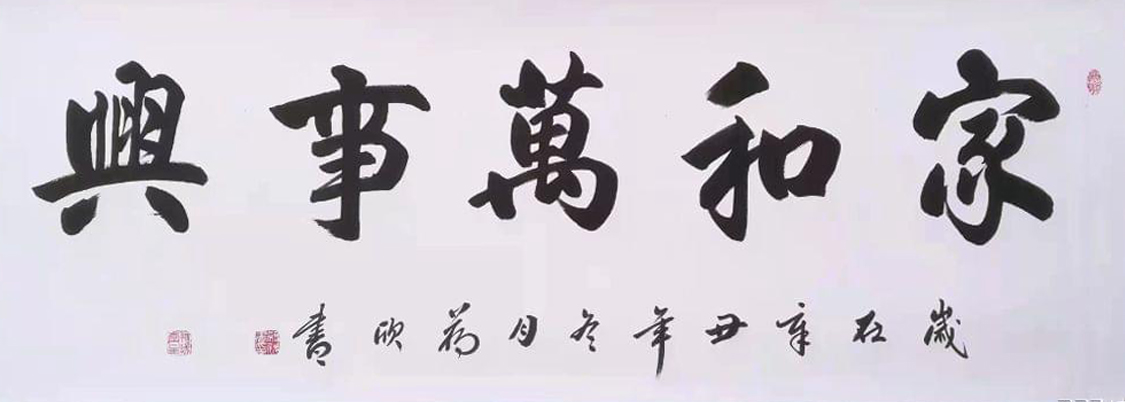 家和萬事興
歲在辛丑年冬月為欣書